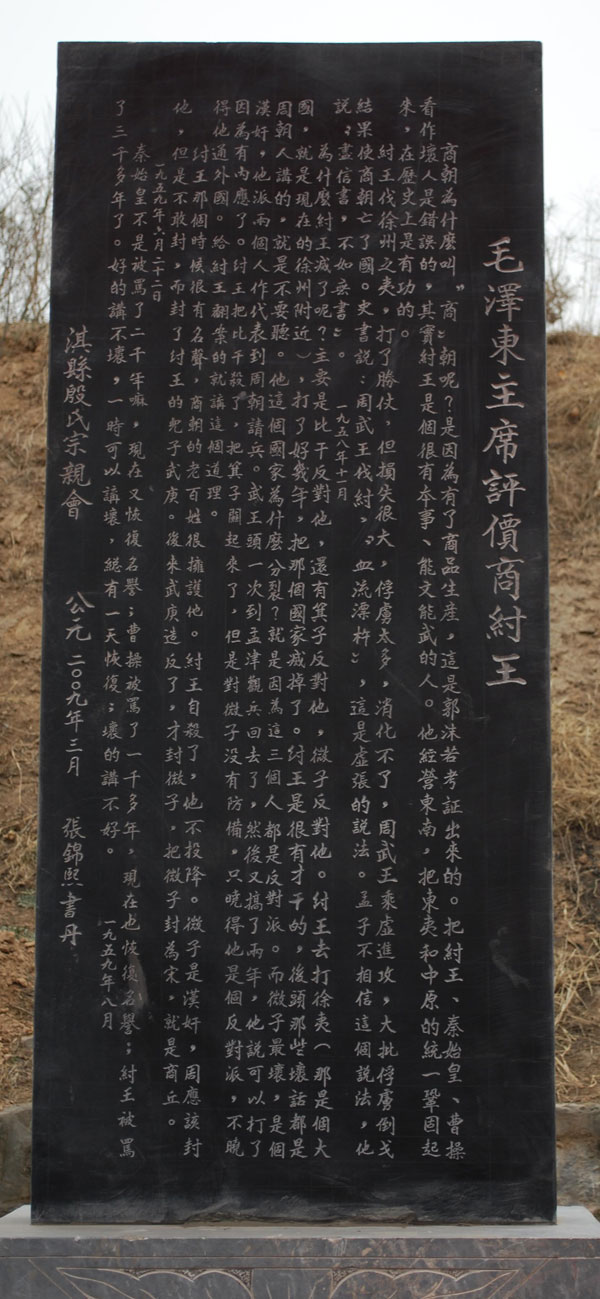 毛澤東主席評價商紂王
商朝為什麼叫“商”朝呢？是因為有了商品生産，這是郭沫若考証出來的。把紂王、秦始皇、曹操
看作壞人是錯誤的，其實紂王是個很有本事、能文能武的人。他經營東南，把東夷和中原的統一鞏固起
來，在歷史上是有功的。
紂王伐徐州之夷，打了勝仗，但損失很大，俘虜太多，消化不了，周武王乘虛進攻，大批俘虜倒戈
結果使商朝亡了國。史書説：周武王伐紂，“血流漂杵”，這是虛張的説法。孟子不相信這個説法，他
説：“盡信書，不如無書”。 一九五八年十一月
為什麼紂王滅了呢？主要是比干反對他，還有箕子反對他，微子反對他。紂王去打徐夷（那是個大
國，就是現在的徐州附近），打了好幾年，把那個國家滅掉了。紂王是很有才干的，後頭那些壞話都是
周朝人講的，就是不要聽。他這個國家為什麼分裂？就是因為這三個人都是反對派。而微子最壞，是個
漢奸，他派兩個人作代表到周朝請兵。武王頭一次到孟津觀兵回去了，然後又搞了兩年，他説可以打了
因為有內應了。紂王把比干殺了，把箕子關起來了，但是對微子没有防備，只曉得他是個反對派，不曉
得他通外國。給紂王翻案的就講這個道理。
紂王那個時候很有名聲，商朝的老百姓很擁護他。紂王自殺了，他不投降。微子是漢奸，周應該封
他，但是不敢封，而封了紂王的兒子武庚。後來武庚造反了，才封微子，把微子封為宋，就是商丘。
一九五九年六月二十二日
秦始皇不是被罵了二千年嘛，現在又恢復名譽；曹操被罵了一千多年，現在也恢復名譽；紂王被罵
了三千多年了。好的講不壞，一時可以講壞，總有一天恢復；壞的講不好。 一九五九年八月
淇縣殷氏宗親會 公元二〇〇九年三月 張錦熙書丹